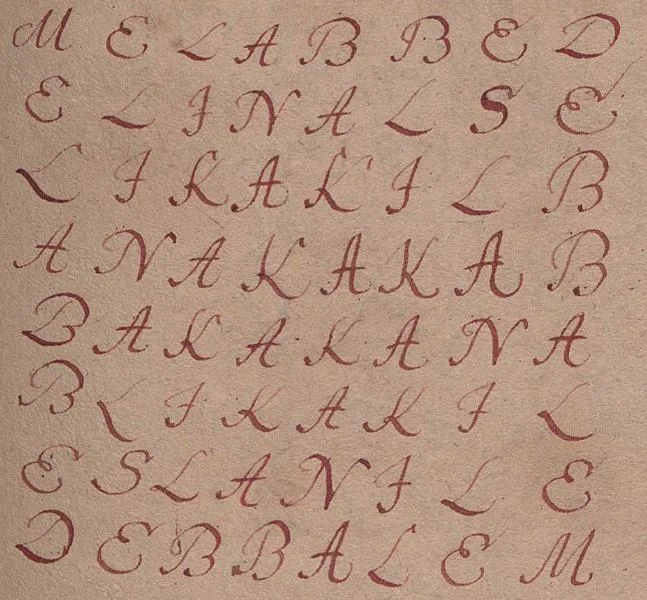 M E L A B B E D
E L I N A L S E
L I K A K I L B
A N A K A K A B
B A K A K A N A
B L I K A K I L
E S L A N I L E
D E B B A L E M